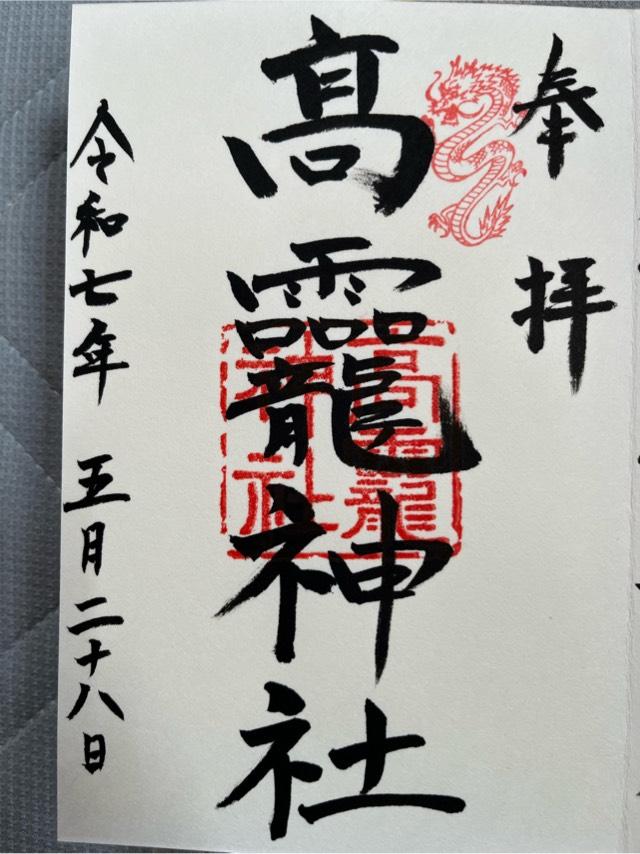 奉拝
髙龗神社
髙龗神社
令和七年 五月二十八日